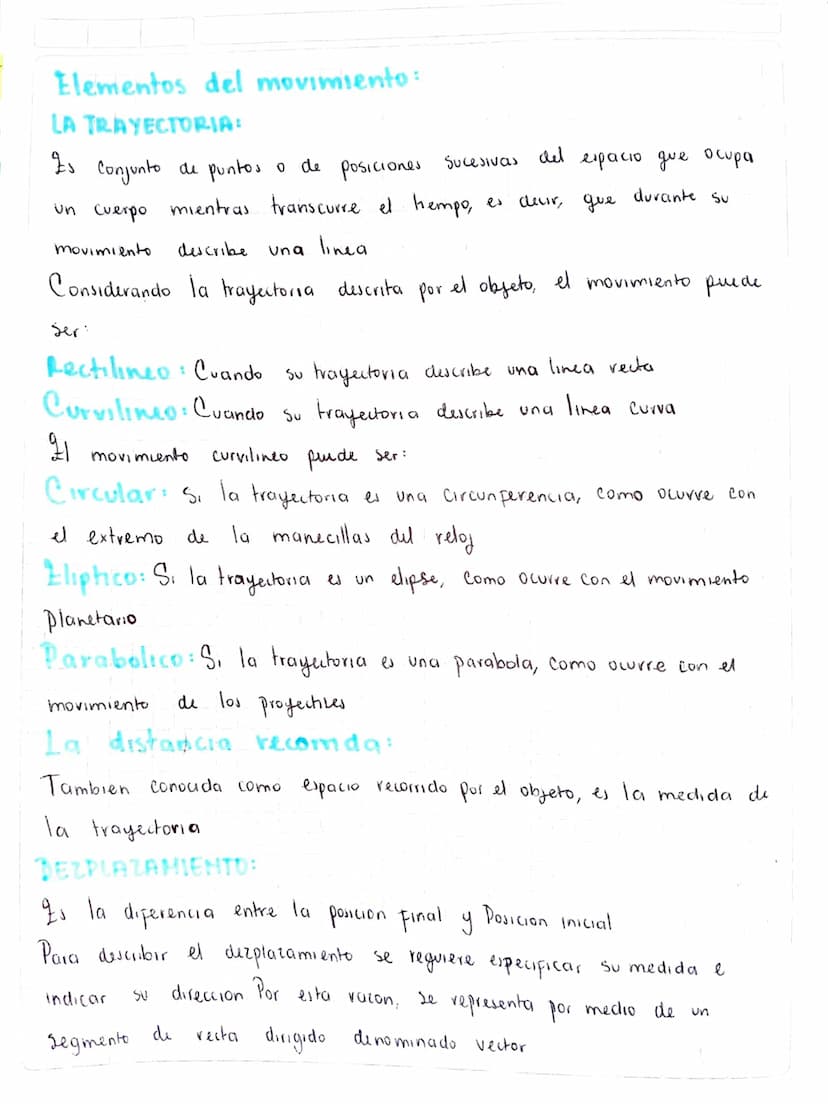 Elementos del movimiento:
LA TRAYECTORIA:
Es conjunto de puntos o de posiciones sucesivas del espacio que ocupa
un cuerpo mientras transcurre el tiempo, es decir, que durante su
movimiento describe una linea
Considerando la trayectoria descrita por el objeto, el movimiento puede
ser:
Rectilineo: Cuando su trayectoria describe una linea recta
Curvilineo: Cuando su trayectoria describe una linea curva
El movimiento curvilineo puede ser:
Circular: Si la trayectoria es una circunferencia, como ocurre con
el extremo de la manecillas del reloj
Eliptico: Si la trayectoria es un elipse, como ocurre con el movimiento
planetario
Parabolico: Si la trayectoria es una parabola, como ocurre con el
movimiento de los proyectiles
La distancia recorrida:
Tambien conocida como espacio recorrido por el objeto, es la medida de
la trayectoria
DEZPLAZAMIENTO:
Es la diferencia entre la posicion final y Posicion inicial
Para describir el dezplazamiento se requiere especificar su medida e
indicar su direccion Por esta razon, se representa por medio de un
segmento de recta dirigido denominado vector